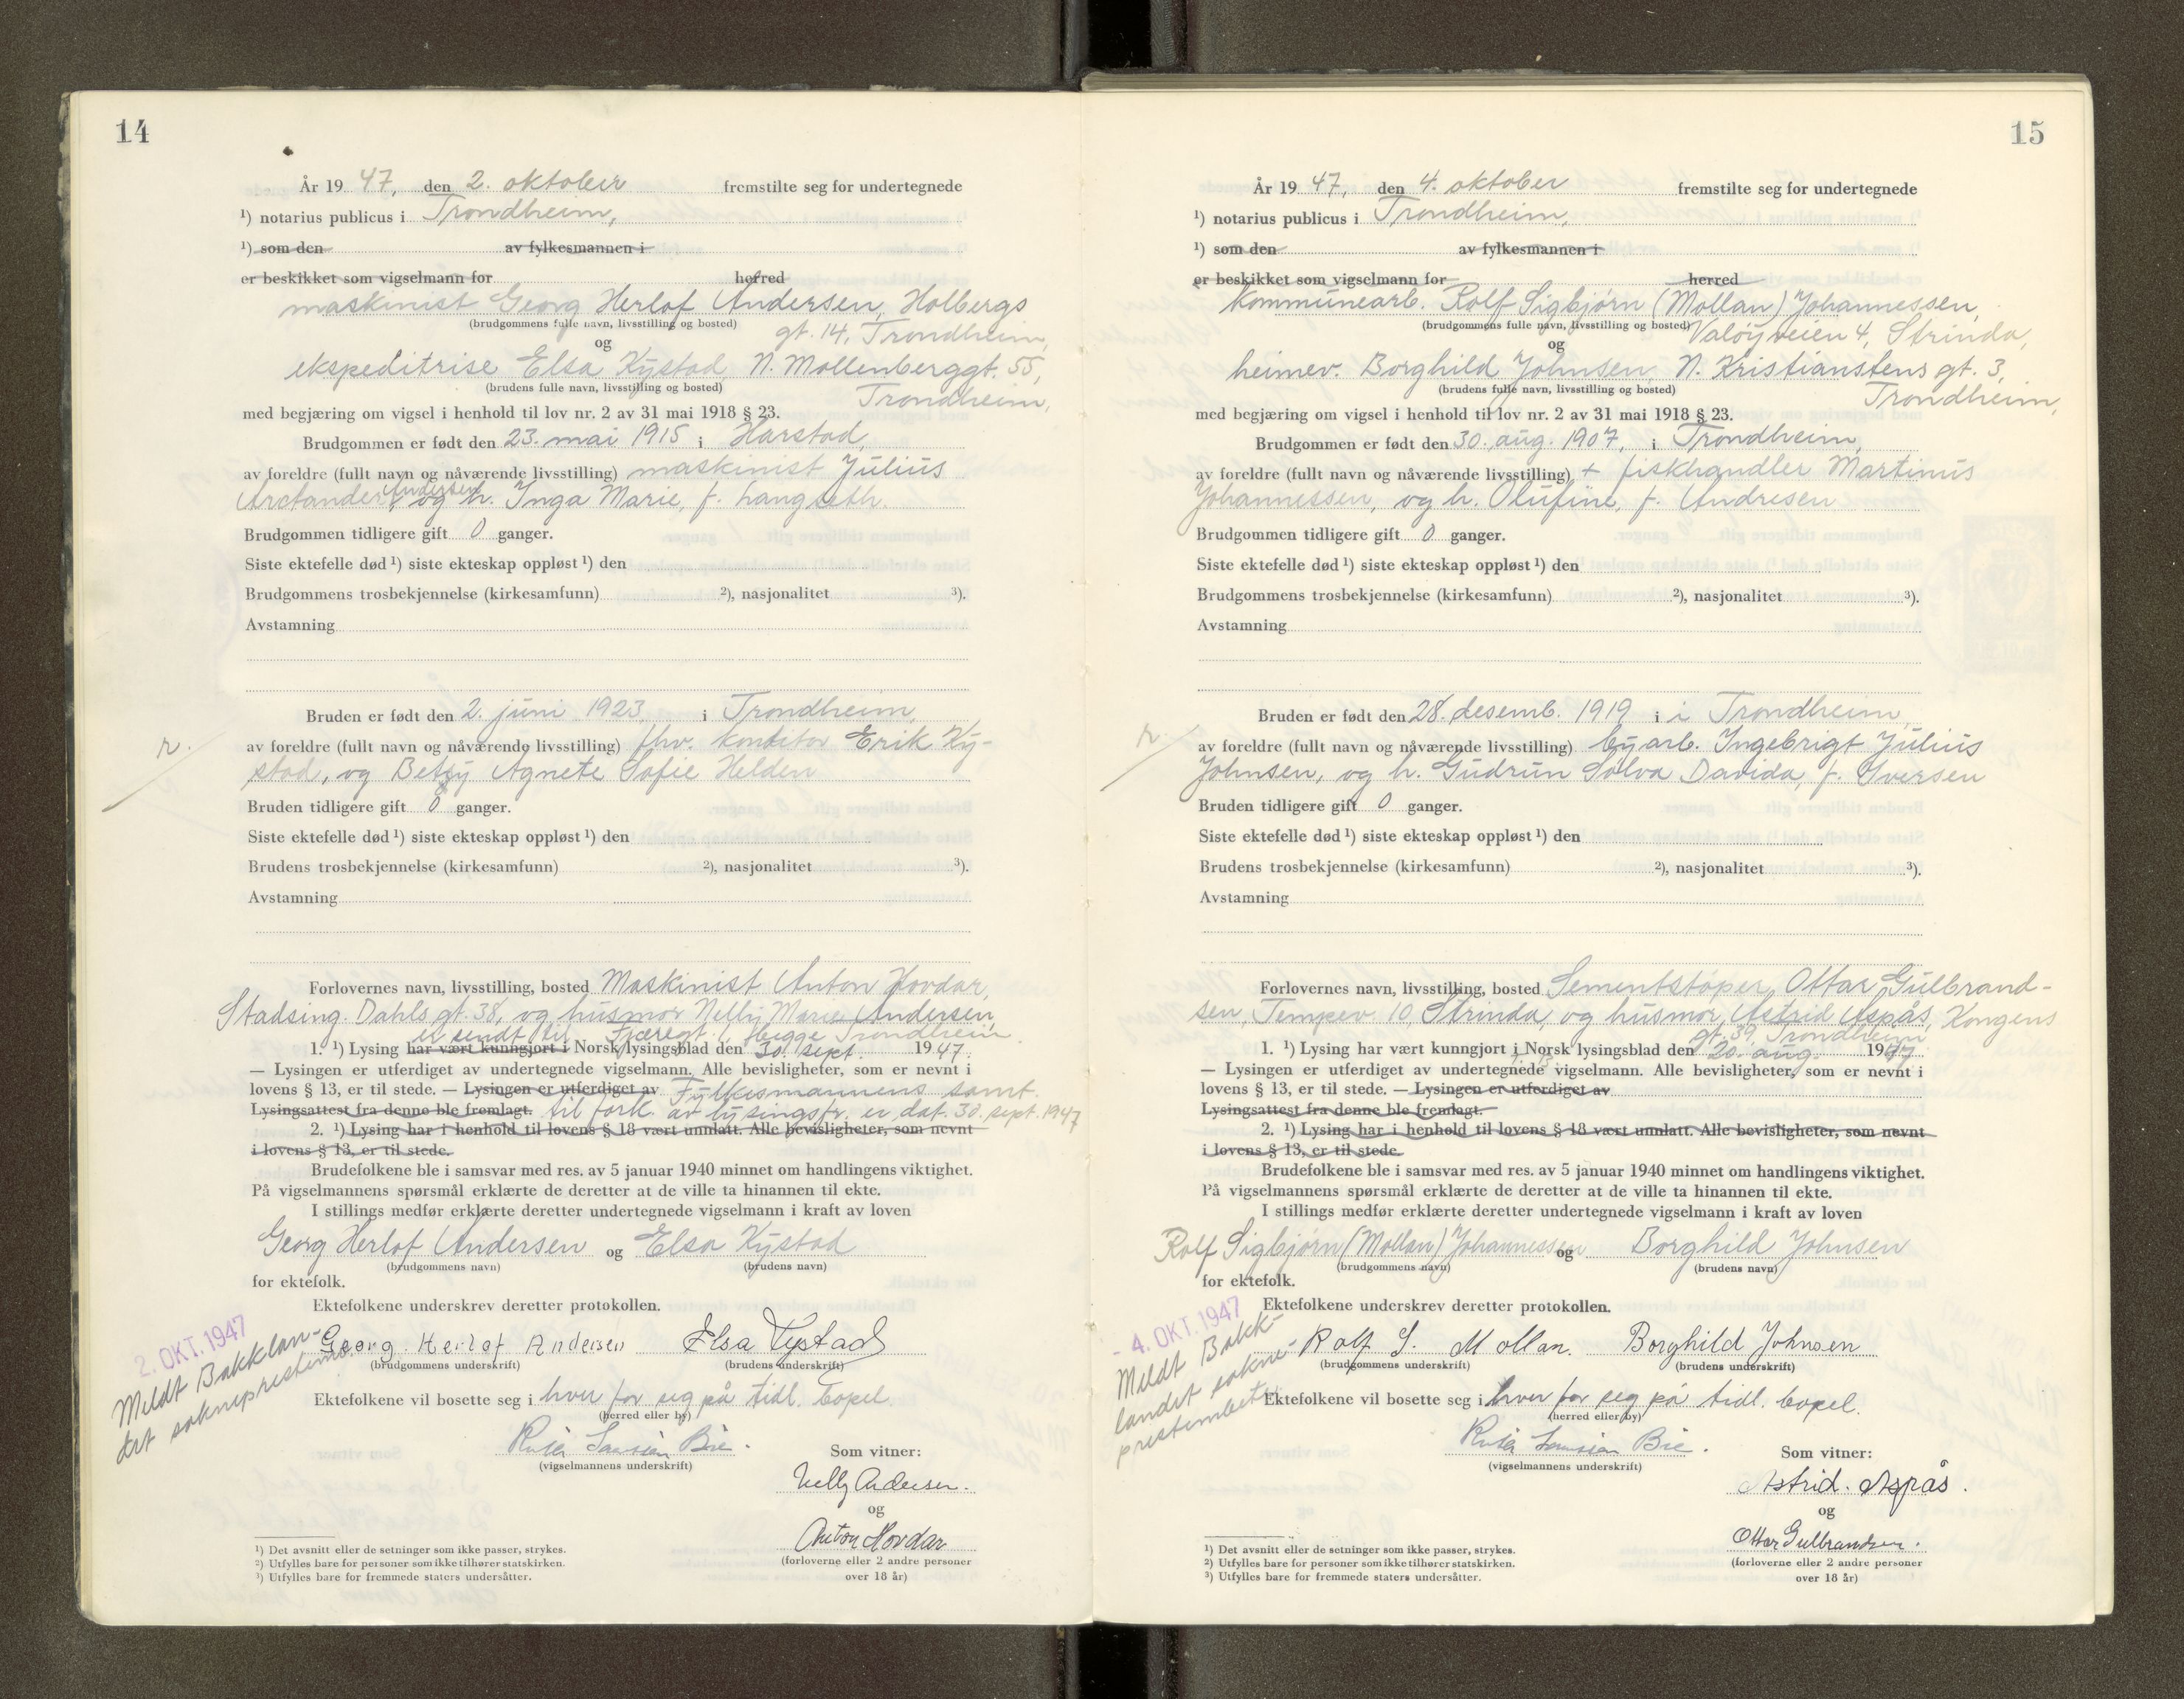 14
År 19 47, den 2. oktober fremstilte seg for undertegnede
¹) notarius publicus i Trondheim,
¹) som den av fylkesmannen i
er beskikket som vigselmann for herred
maskinist Georg Herlof Andersen, Holbergs
(brudgommens fulle navn, livsstilling og bosted) gt. 14, Trondheim,
og
ekspeditrise Elsa Kystad, N. Møllenberggt. 55,
(brudens fulle navn, livsstilling og bosted) Trondheim,
med begjæring om vigsel i henhold til lov nr. 2 av 31 mai 1918 § 23.
Brudgommen er født den 23. mai 1915 i Harstad,
av foreldre (fullt navn og nåværende livsstilling) maskinist Julius
Arctander Andersen, og h. Inga Marie, f. Langseth.
Brudgommen tidligere gift 0 ganger.
Siste ektefelle død ¹) siste ekteskap oppløst ¹) den
Brudgommens trosbekjennelse (kirkesamfunn) ²), nasjonalitet ³).
Avstamning
Bruden er født den 2. juni 1923 i Trondheim,
r.
av foreldre (fullt navn og nåværende livsstilling) fhv. konditor Erik Ky-
stad, og Betsy Agnete Sofie Helden
Bruden tidligere gift 0 ganger.
Siste ektefelle død ¹) siste ekteskap oppløst ¹) den
Brudens trosbekjennelse (kirkesamfunn) ²), nasjonalitet ³).
Avstamning
Forlovernes navn, livsstilling, bosted Maskinist Anton Hovdar,
Stadsing. Dahls gt. 38, og husmor Nelly Marie Andersen,
er sendt til Fjæregt. 1, Trondheim
1. ¹) Lysing har vært kunngjort i Norsk lysingsblad den 30. sept. 1947.
— Lysingen er utferdiget av undertegnede vigselmann. Alle bevisligheter, som er nevnt i
lovens § 13, er til stede. — Lysingen er utferdiget av Fylkesmannens samt.
Lysingsattest fra denne ble fremlagt. til fork. av lysingsfr. er dat. 30. sept. 1947
2. ¹) Lysing har i henhold til lovens § 18 vært unnlatt. Alle bevisligheter, som nevnt
i lovens § 13, er til stede.
Brudefolkene ble i samsvar med res. av 5 januar 1940 minnet om handlingens viktighet.
På vigselmannens spørsmål erklærte de deretter at de ville ta hinannen til ekte.
I stillings medfør erklærte deretter undertegnede vigselmann i kraft av loven
Georg Herlof Andersen og Elsa Kystad
(brudgommens navn) (brudens navn)
for ektefolk.
Ektefolkene underskrev deretter protokollen.
2. OKT. 1947
Meldt Bakklan-
det sokneprestemb.
Georg Herlof Andersen Elsa Kystad
(brudgommens underskrift) (brudens underskrift)
Ektefolkene vil bosette seg i hver for seg på tidl. bopel.
(herred eller by)
Bie.
(vigselmannens underskrift)
Som vitner:
Nelly Andersen.
og
Anton Hovdar
(forloverne eller 2 andre personer
over 18 år)
¹) Det avsnitt eller de setninger som ikke passer, strykes.
²) Utfylles bare for personer som ikke tilhører statskirken.
³) Utfylles bare for fremmede staters undersåtter.
15
År 19 47, den 4. oktober fremstilte seg for undertegnede
¹) notarius publicus i Trondheim,
¹) som den av fylkesmannen i
er beskikket som vigselmann for herred
kommunearb. Rolf Sigbjørn (Mollan) Johannessen,
(brudgommens fulle navn, livsstilling og bosted) Valøyveien 4, Strinda,
og
heimev. Borghild Johnsen, N. Kristianstens gt. 3,
(brudens fulle navn, livsstilling og bosted) Trondheim,
med begjæring om vigsel i henhold til lov nr. 2 av 31 mai 1918 § 23.
Brudgommen er født den 30. aug. 1907, i Trondheim,
av foreldre (fullt navn og nåværende livsstilling) + fiskhandler Martinus
Johannessen, og h. Olufine, f. Andresen
Brudgommen tidligere gift 0 ganger.
Siste ektefelle død ¹) siste ekteskap oppløst ¹) den
Brudgommens trosbekjennelse (kirkesamfunn) ²), nasjonalitet ³).
Avstamning
Bruden er født den 28. desemb. 1919 i i Trondheim,
r.
av foreldre (fullt navn og nåværende livsstilling) byarb. Ingebrigt Julius
Johnsen, og h. Gudrun Solva Davida, f. Iversen
Bruden tidligere gift 0 ganger.
Siste ektefelle død ¹) siste ekteskap oppløst ¹) den
Brudens trosbekjennelse (kirkesamfunn) ²), nasjonalitet ³).
Avstamning
Forlovernes navn, livsstilling, bosted Sementstøper Ottar Gulbrand-
sen, Tempev. 10, Strinda, og husmor Astrid Aspås, Kongens
gt. 39, Trondheim
1. ¹) Lysing har vært kunngjort i Norsk lysingsblad den 20. aug. 1947
— Lysingen er utferdiget av undertegnede vigselmann. Alle bevisligheter, som er nevnt i
lovens § 13, er til stede. — Lysingen er utferdiget av
Lysingsattest fra denne ble fremlagt.
2. ¹) Lysing har i henhold til lovens § 18 vært unnlatt. Alle bevisligheter, som nevnt
i lovens § 13, er til stede.
Brudefolkene ble i samsvar med res. av 5 januar 1940 minnet om handlingens viktighet.
På vigselmannens spørsmål erklærte de deretter at de ville ta hinannen til ekte.
I stillings medfør erklærte deretter undertegnede vigselmann i kraft av loven
Rolf Sigbjørn (Mollan) Johannessen og Borghild Johnsen
(brudgommens navn) (brudens navn)
for ektefolk.
Ektefolkene underskrev deretter protokollen.
- 4. OKT. 1947
Meldt Bakk-
landet sokne-
prestembet
Rolf S. Mollan. Borghild Johnsen
(brudgommens underskrift) (brudens underskrift)
Ektefolkene vil bosette seg i hver for seg på tidl. bopel.
(herred eller by)
Bie.
(vigselmannens underskrift)
Som vitner:
Astrid. Aspås.
og
Ottar Gulbrandsen.
(forloverne eller 2 andre personer
over 18 år)
¹) Det avsnitt eller de setninger som ikke passer, strykes.
²) Utfylles bare for personer som ikke tilhører statskirken.
³) Utfylles bare for fremmede staters undersåtter.